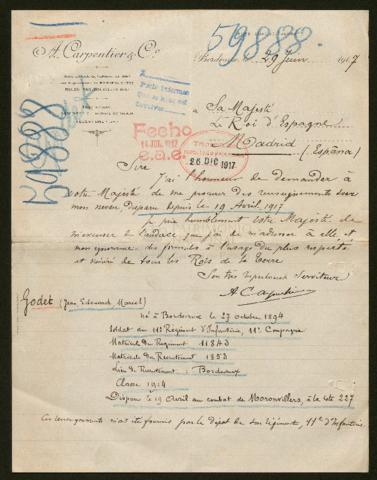 59888.
A. Carpentier & Co
Bordeaux, le 29 Juin 1917
A Sa Majesté
Le Roi d'Espagne
Madrid
(España)
Fecho
14 JUL. 1917
e.a.e.
26 DIC 1917
59888
Sire
J'ai l'honneur de demander à
votre Majesté de me procurer des renseignements sur
mon neveu, disparu depuis le 19 Avril 1917
Je prie humblement votre Majesté de
m'excuser de l'audace que j'ai de m'adresser à elle, et
mon ignorance des formules à l'usage du plus respecté
et suivi de tous les Rois de la Terre
Son très respectueux Serviteur
A Carpentier
Godet (Jean Edouard Marcel)
né à Bordeaux le 27 octobre 1894
Soldat au 11e Régiment d'Infanterie, 11e Compagnie
Matricule du Régiment 11843
Matricule du Recrutement 1853
Lieu de Recrutement : Bordeaux
Classe 1914
Disparu le 19 Avril au combat de Moronvillers, à la côte 227
Ces renseignements m'ont été fournis par le dépôt de son régiment, 11e d'Infanterie.